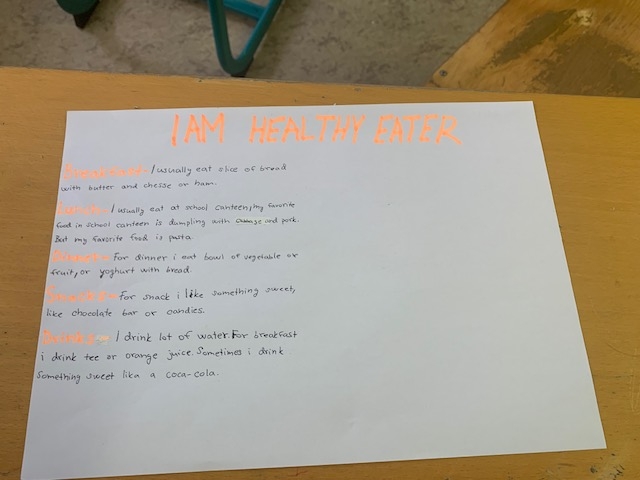 I AM HEALTHY EATER
Breakfast- I usually eat slice of bread
with butter and chesse or ham.
Lunch- I usually eat at school canteen, my favorite
food in school canteen is dumpling with cabbage and pork.
But my favorite food is pasta.
Dinner- For dinner i eat bowl of vegetable or
fruit, or yoghurt with bread.
Snacks- For snack i like something sweet,
like chocolate bar or candies.
Drinks- I drink lot of water. For breakfast
i drink tee or orange juice. Sometimes i drink
something sweet like a coca-cola.